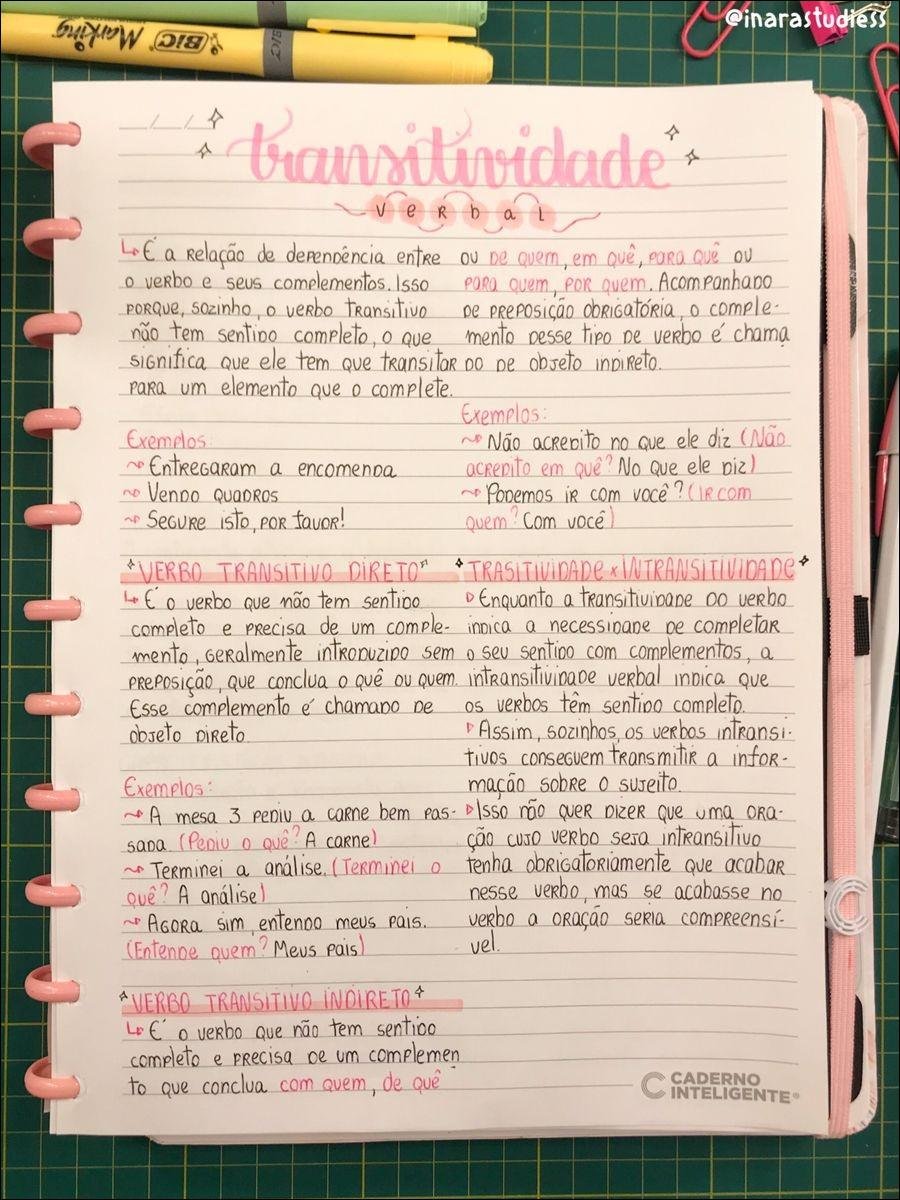 @inarastudiess
Marking BIC
BIC
__/__/__
transitividade
verbal
↳ É a relação de dependência entre
o verbo e seus complementos. Isso
porque, sozinho, o verbo transitivo
não tem sentido completo, o que
significa que ele tem que transitar
para um elemento que o complete.
Exemplos:
~ Entregaram a encomenda
~ Vendo quadros
~ Segure isto, por favor!
VERBO TRANSITIVO DIRETO
↳ É o verbo que não tem sentido
completo e precisa de um comple-
mento, geralmente introduzido sem
preposição, que conclua o quê ou quem.
Esse complemento é chamado de
objeto direto.
Exemplos:
~ A mesa 3 pediu a carne bem pas-
sada (Pediu o quê? A carne)
~ Terminei a análise. (Terminei o
quê? A análise)
~ Agora sim, entendo meus pais.
(Entende quem? Meus pais)
VERBO TRANSITIVO INDIRETO
↳ É o verbo que não tem sentido
completo e precisa de um complemen
to que conclua com quem, de quê
ou de quem, em quê, para quê ou
para quem, por quem. Acompanhado
de preposição obrigatória, o comple-
mento desse tipo de verbo é chama
do de objeto indireto.
Exemplos:
~ Não acredito no que ele diz (Não
acredito em quê? No que ele diz)
~ Podemos ir com você? (Ir com
quem? Com você)
TRASITIVIDADE x INTRANSITIVIDADE
▷ Enquanto a transitividade do verbo
indica a necessidade de completar
o seu sentido com complementos, a
intransitividade verbal indica que
os verbos têm sentido completo.
▷ Assim, sozinhos, os verbos intransi-
tivos conseguem transmitir a infor-
mação sobre o sujeito.
▷ Isso não quer dizer que uma ora-
ção cujo verbo seja intransitivo
tenha obrigatoriamente que acabar
nesse verbo, mas se acabasse no
verbo a oração seria compreensí-
vel.
CADERNO
INTELIGENTE®